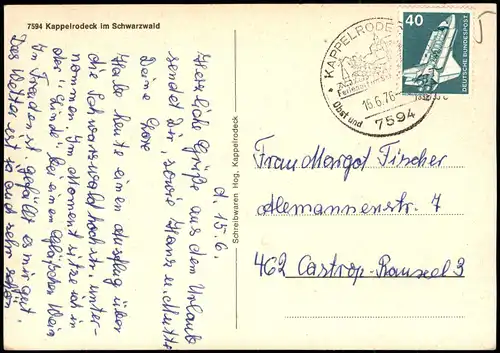 7594 Kappelrodeck im Schwarzwald
d. 15.6.
Herzliche Grüße aus dem Urlaub
sendet Dir, sowie Hans u. Mutti
Deine
Habe heute einen Ausflug über
die Schwarzwaldhochstr. unter-
nommen. Im Moment sitze ich in
der "Linde" bei einem Gläschen Wein
im Freien. Es gefällt es mir gut.
Das Wetter ist ja auch sehr schön
Schreibwaren Hog, Kappelrodeck
KAPPELRODECK
Obst und
16.6.76
7594
40
DEUTSCHE BUNDESPOST
Frau Margot Fischer
Alemannenstr. 7
462 Castrop-Rauxel 3